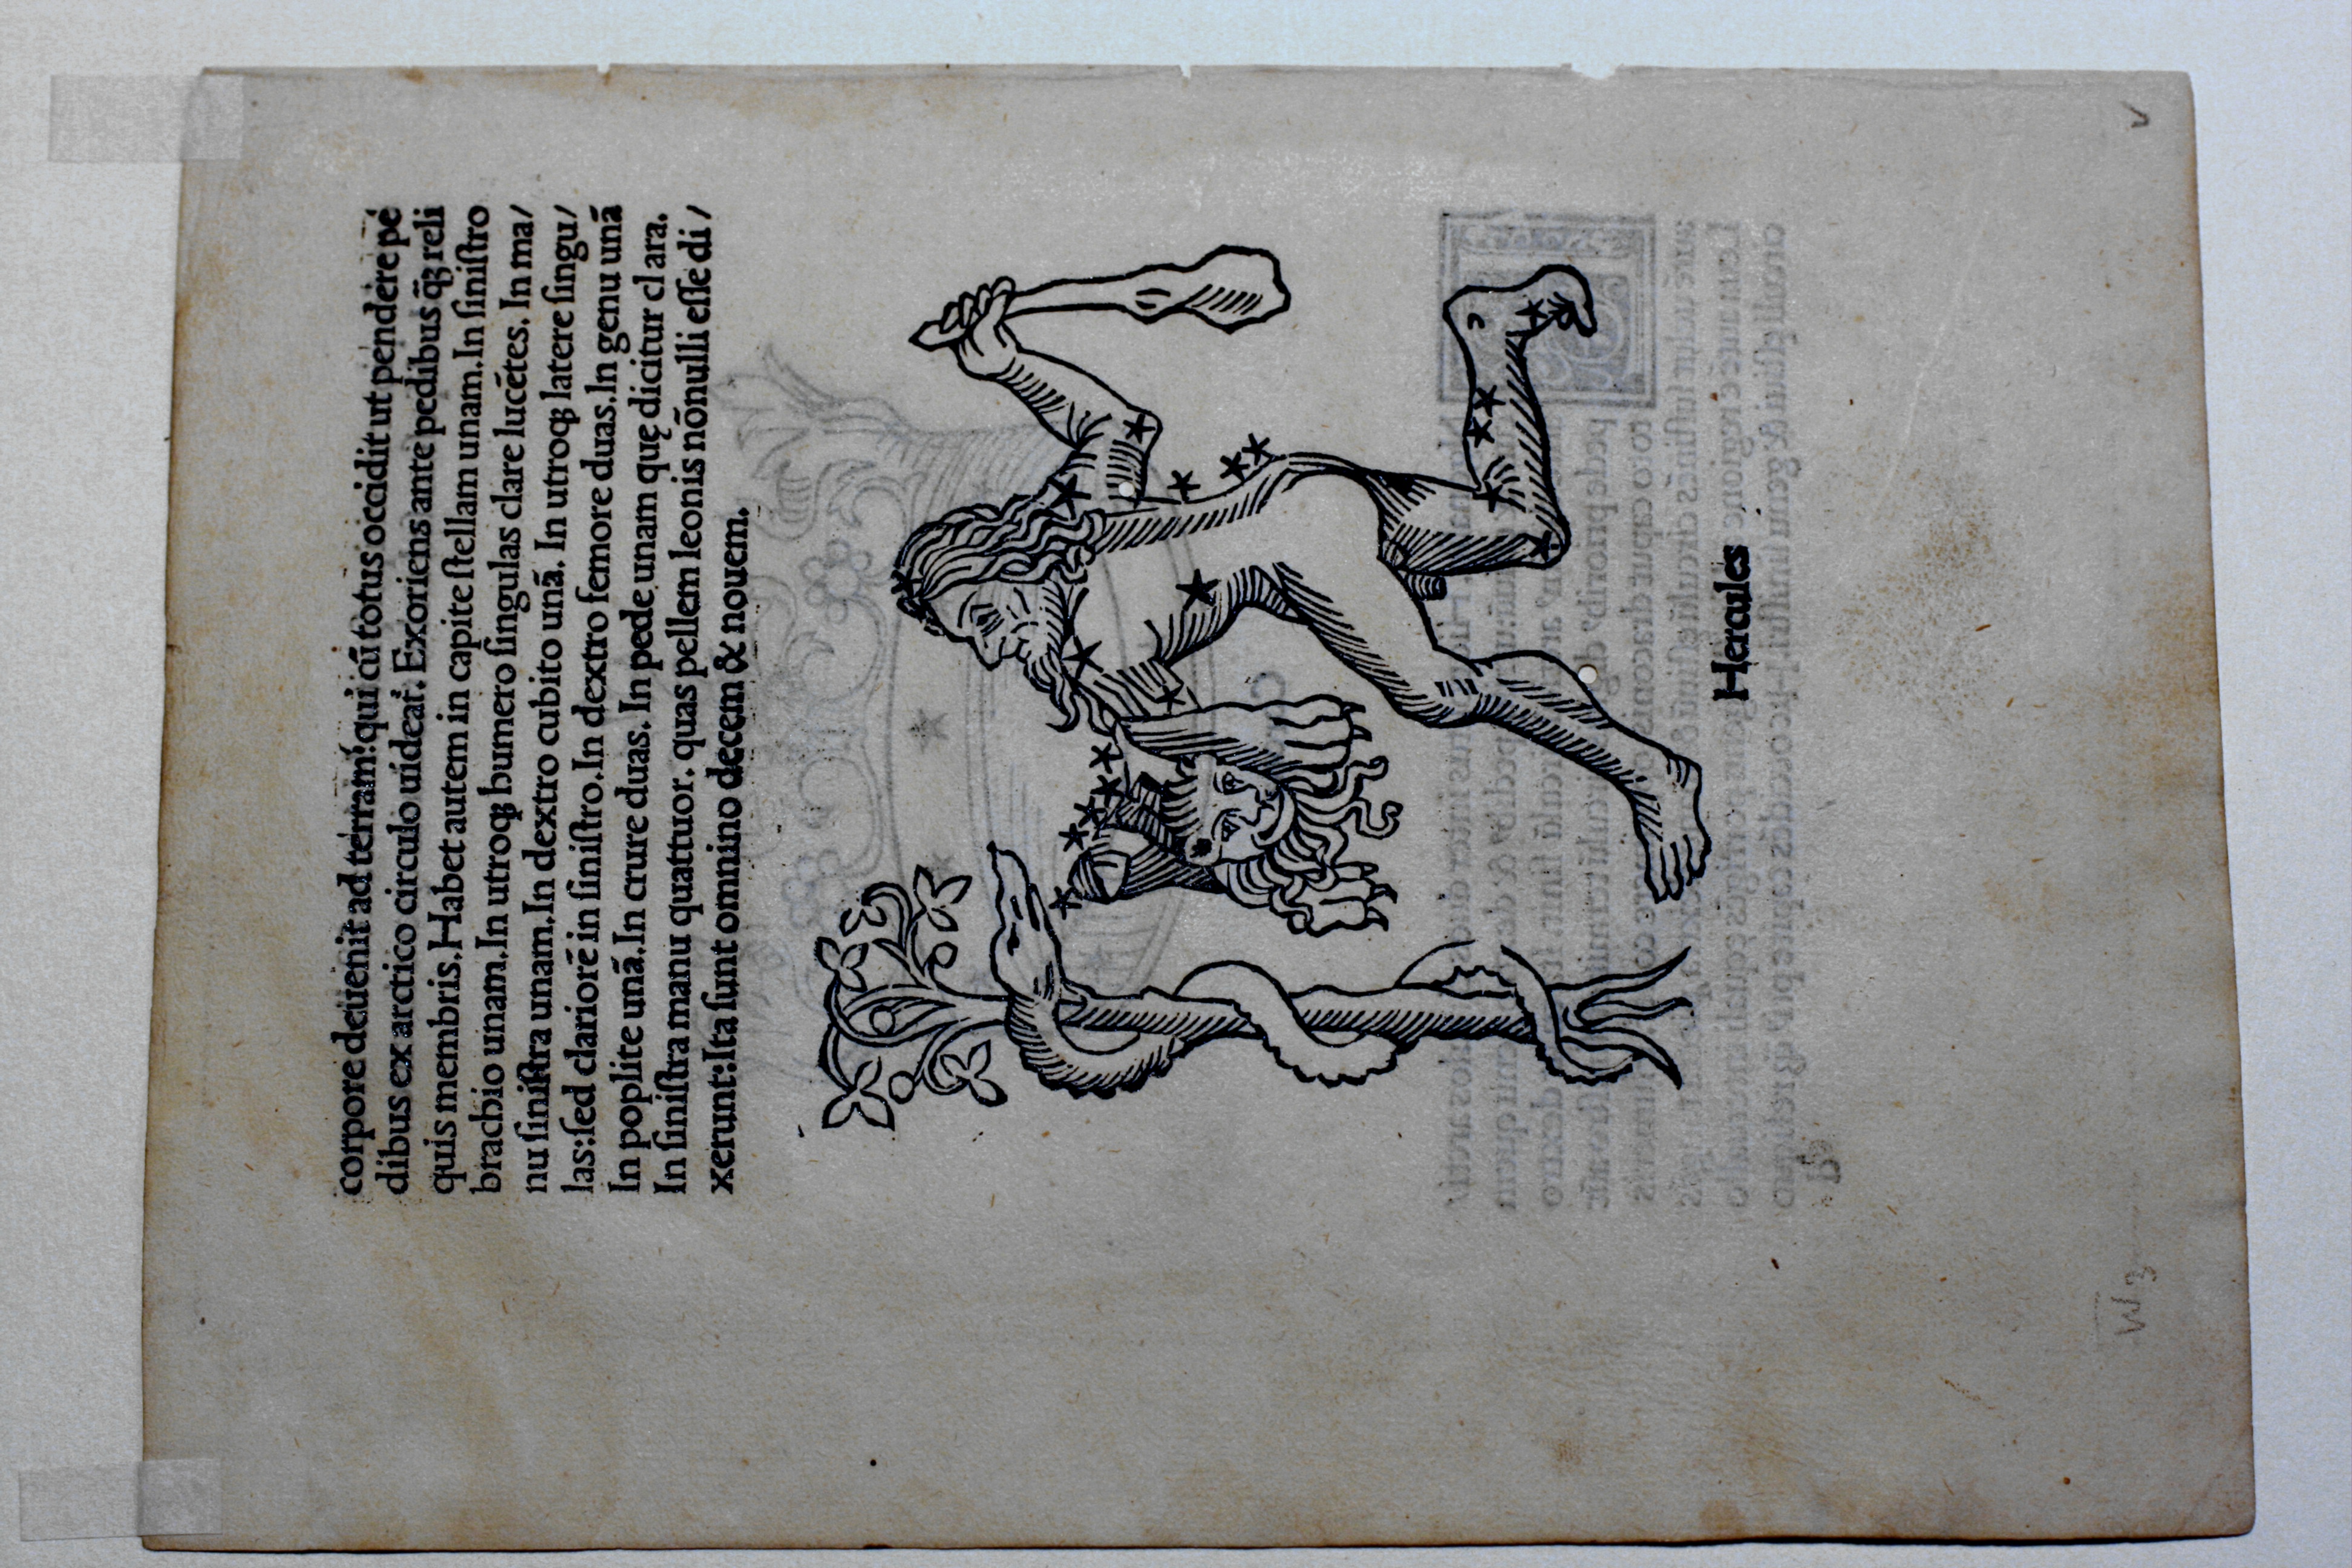 corpore deuenit ad terram: qui cū totus occidit ut pendere pe
dibus ex arctico circulo uideat. Exoriens ante pedibus q̄ꝫ reli
quis membris. Habet autem in capite ſtellam unam. In ſiniſtro
brachio unam. In utroqꝫ humero ſingulas clare lucētes. In ma/
nu ſiniſtra unam. In dextro cubito unā. In utroqꝫ latere ſingu/
las: ſed clariorē in ſiniſtro. In dextro femore duas. In genu unā
In poplite unā. In crure duas. In pede unam quę dicitur clara.
In ſiniſtra manu quattuor. quas pellem leonis nōnulli eſſe di/
xerunt: Ita ſunt omnino decem & nouem.
Hercules